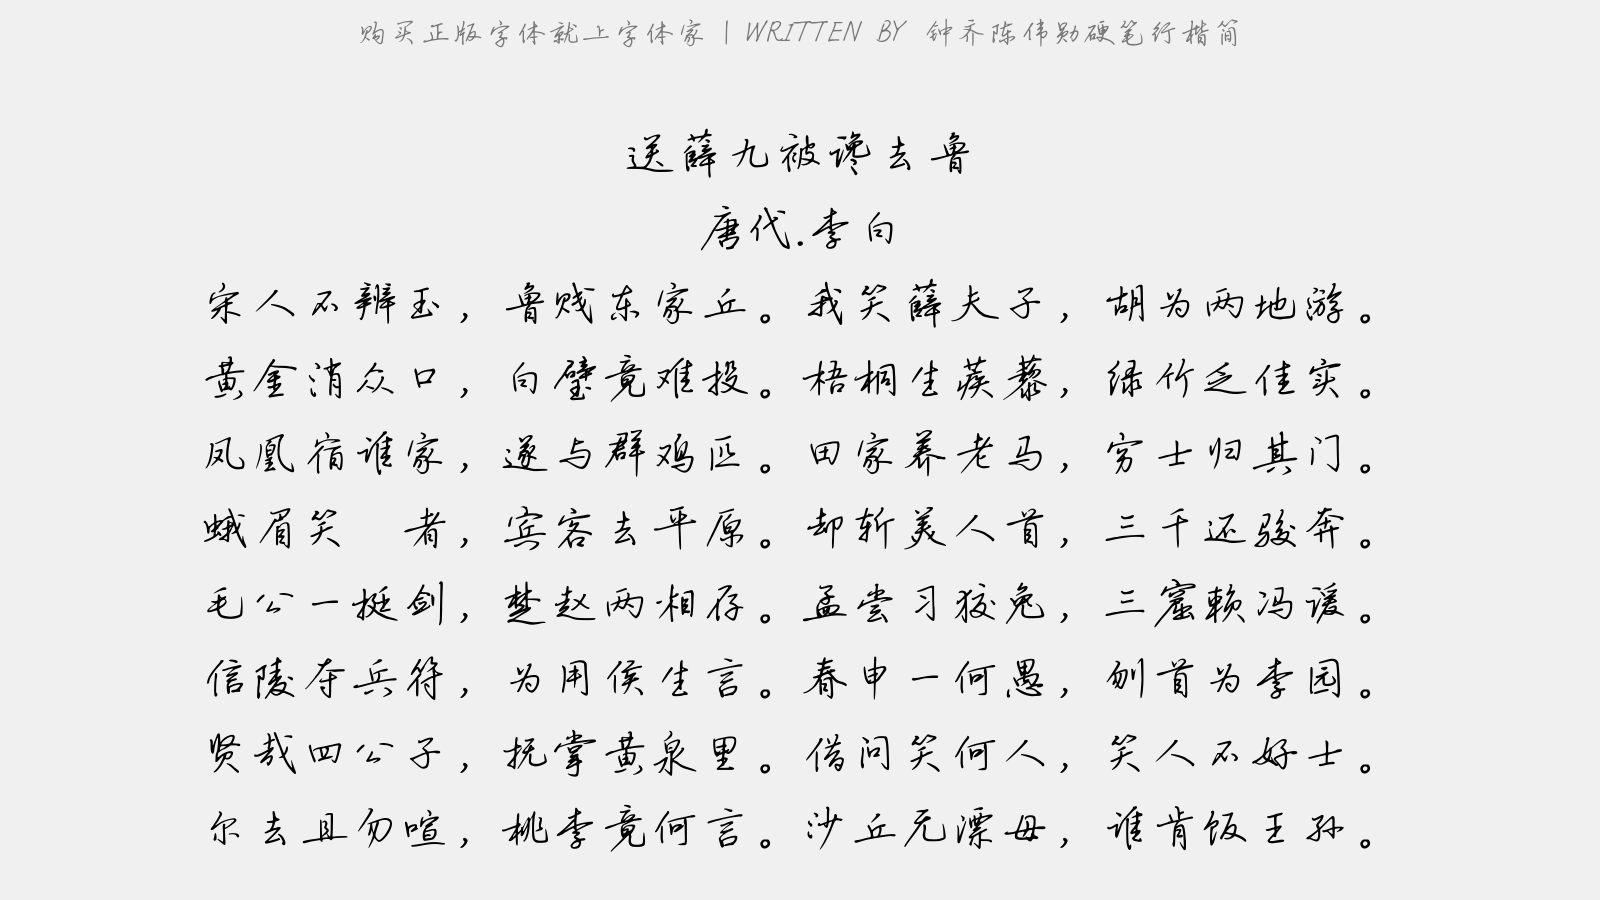 购买正版字体就上字体家 | WRITTEN BY 钟齐陈伟勋硬笔行楷简
送薛九被谗去鲁
唐代.李白
宋人不辨玉，鲁贱东家丘。我笑薛夫子，胡为两地游。
黄金消众口，白璧竟难投。梧桐生蒺藜，绿竹乏佳实。
凤凰宿谁家，遂与群鸡匹。田家养老马，穷士归其门。
蛾眉笑　者，宾客去平原。却斩美人首，三千还骏奔。
毛公一挺剑，楚赵两相存。孟尝习狡兔，三窟赖冯谖。
信陵夺兵符，为用侯生言。春申一何愚，刎首为李园。
贤哉四公子，抚掌黄泉里。借问笑何人，笑人不好士。
尔去且勿喧，桃李竟何言。沙丘无漂母，谁肯饭王孙。